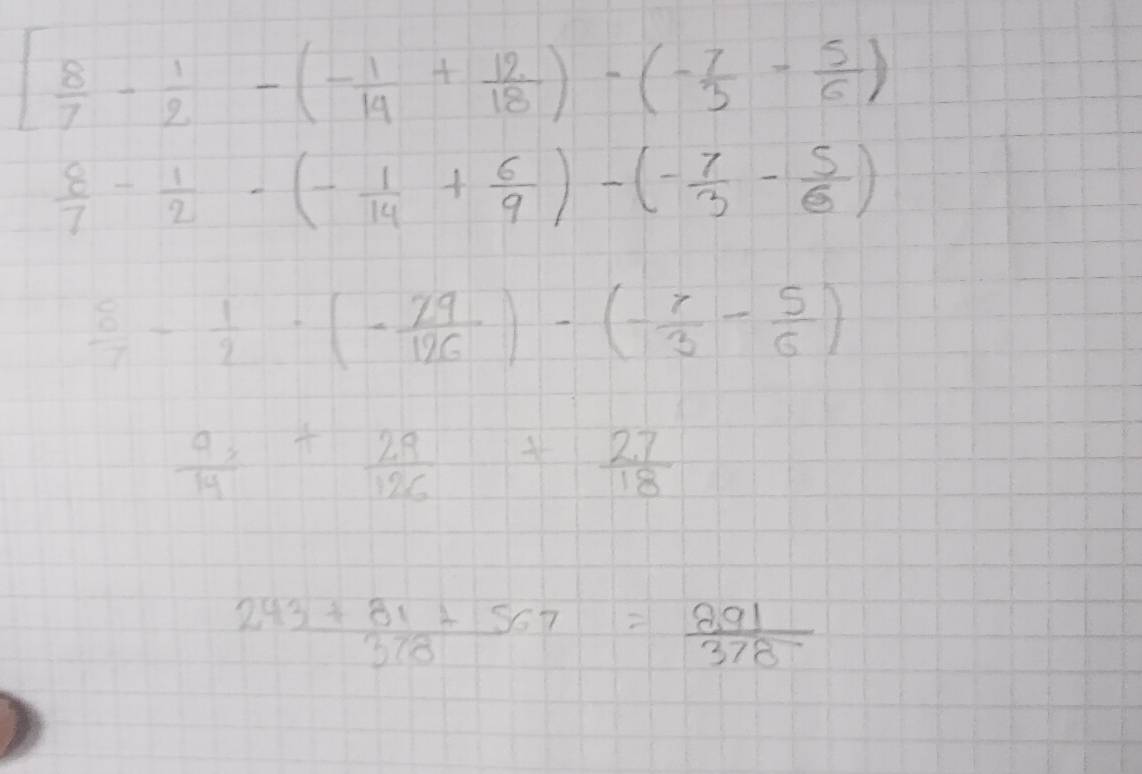 [ 8/7 - 1/2 - (- 1/14 + 12/18) - (- 7/3 - 5/6)
8/7 - 1/2 - (- 1/14 + 6/9) - (- 7/3 - 5/6)
8/7 - 1/2 - (- 29/126) - (- 7/3 - 5/6)
9/14 + 29/126 + 27/18
243 + 81 + 567 / 378 = 891/378